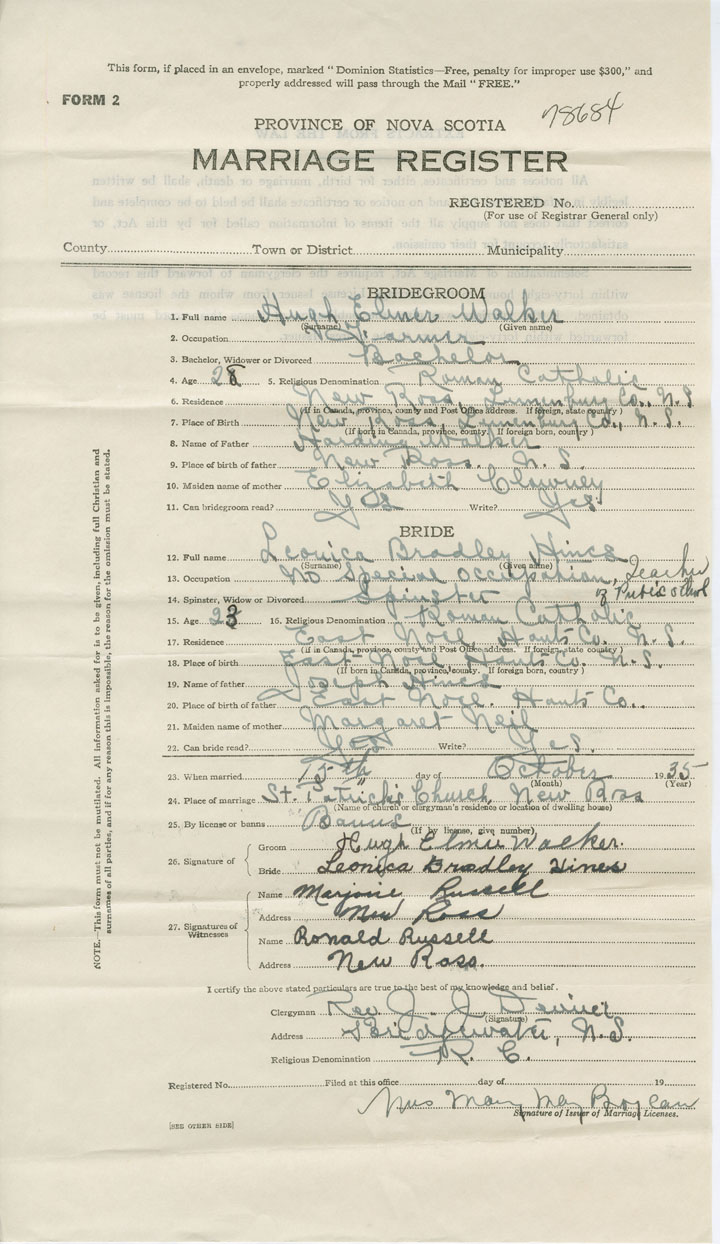 This form, if placed in an envelope, marked "Dominion Statistics—Free, penalty for improper use $300," and
properly addressed will pass through the Mail "FREE."
FORM 2
78684
PROVINCE OF NOVA SCOTIA
MARRIAGE REGISTER
REGISTERED No.
(For use of Registrar General only)
County Town or District Municipality
BRIDEGROOM
1. Full name Hugh Elmer Walker
(Surname) (Given name)
2. Occupation Farmer
3. Bachelor, Widower or Divorced Bachelor
4. Age 28 5. Religious Denomination Roman Catholic
6. Residence New Ross, Lunenburg Co., N.S.
(If in Canada, province, county and Post Office address. If foreign, state country)
7. Place of Birth New Ross, Lunenburg Co., N.S.
(If born in Canada, province, county. If foreign born, country)
8. Name of Father Harding Walker
9. Place of birth of father New Ross. N.S.
10. Maiden name of mother Elizabeth
11. Can bridegroom read? Yes Write? Yes.
BRIDE
12. Full name Leonica Bradley Hines
(Surname) (Given name)
13. Occupation No Special Occupation, Teacher
of Public School
14. Spinster, Widow or Divorced Spinster
15. Age 23 16. Religious Denomination Roman Catholic
17. Residence East Noel, Hants Co. N.S.
(if in Canada, province, county and Post Office address. If foreign, state country)
18. Place of birth East Noel, Hants Co. N.S.
(If born in Canada, province, county. If foreign born, country)
19. Name of father Joseph Hines
20. Place of birth of father East Noel. Hants Co.
21. Maiden name of mother Margaret Neil
22. Can bride read? Yes Write? Yes.
23. When married 15th day of October 1935
(Month) (Year)
24. Place of marriage St. Patrick's Church, New Ross
(Name of church or clergyman's residence or location of dwelling house)
25. By license or banns Banns
(If by license, give number)
26. Signature of
Groom Hugh Elmer Walker.
Bride Leonica Bradley Hines
27. Signatures of Witnesses
Name Marjorie Russell
Address New Ross
Name Ronald Russell
Address New Ross.
I certify the above stated particulars are true to the best of my knowledge and belief.
Clergyman Rev. J. J.
(Signature)
Address Bridgewater, N.S.
Religious Denomination R. C.
Registered No. Filed at this office day of 19
Mrs Mary May
Signature of Issuer of Marriage Licenses.
[SEE OTHER SIDE]
NOTE.—This form must not be mutilated. All information asked for is to be given, including full Christian and
surnames of all parties, and if for any reason this is impossible, the reason for the omission must be stated.